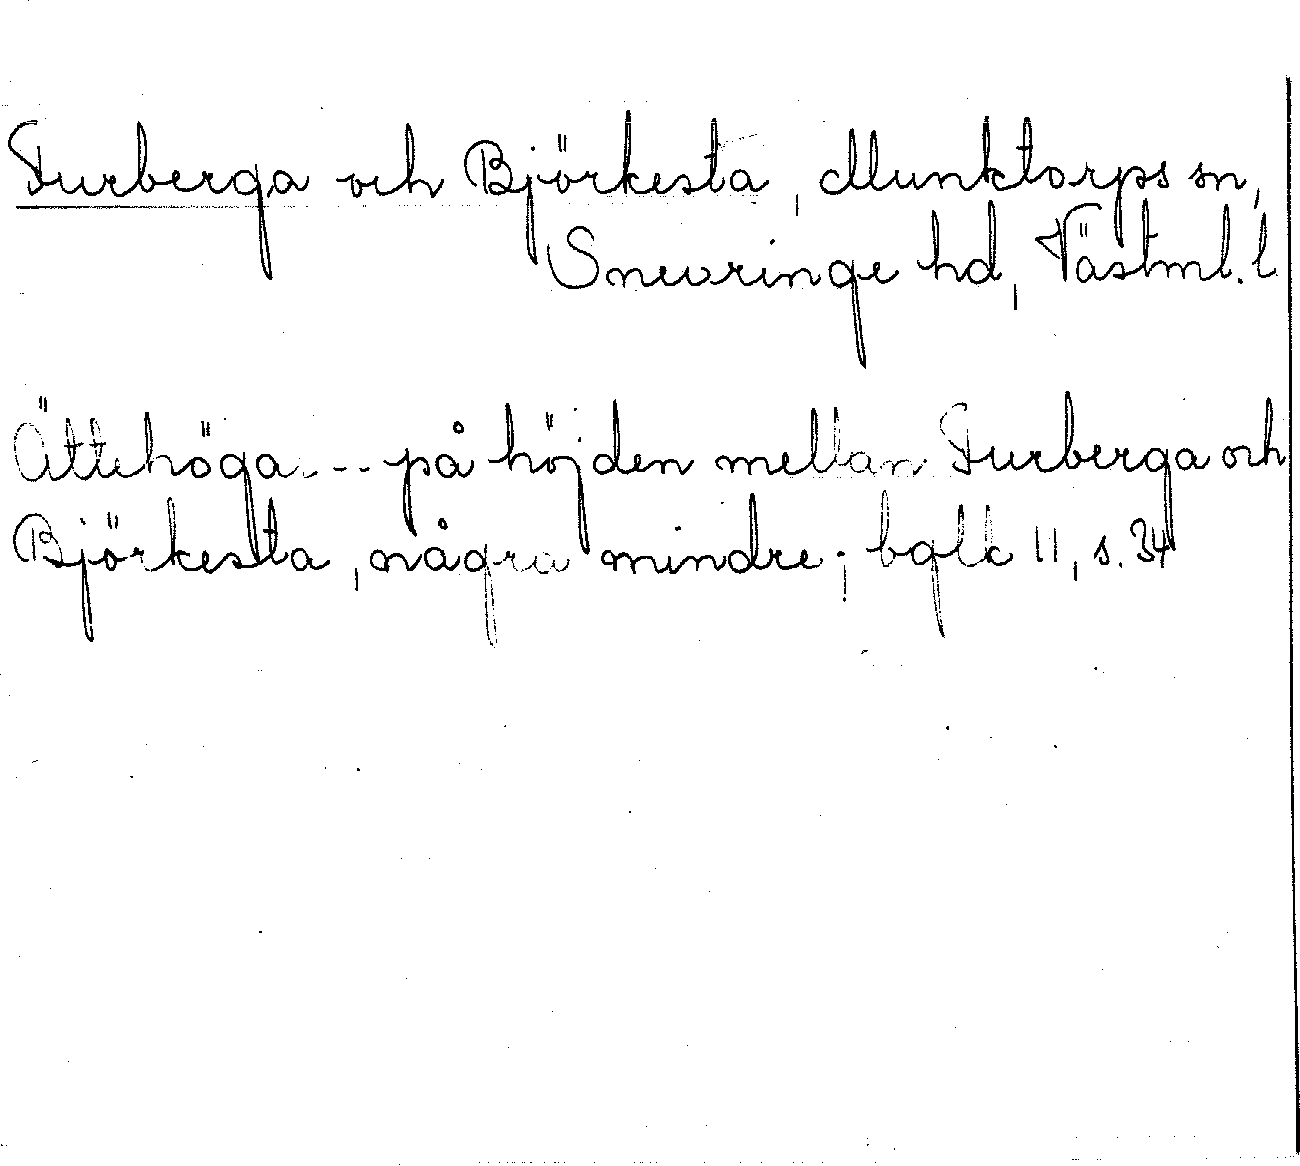 Turberga och Björkesta, Munktorps sn,
Snevringe hd, Västml. l
Ättehöga --- på höjden mellan Turberga och
Björkesta, några mindre; bglk 11, s. 34